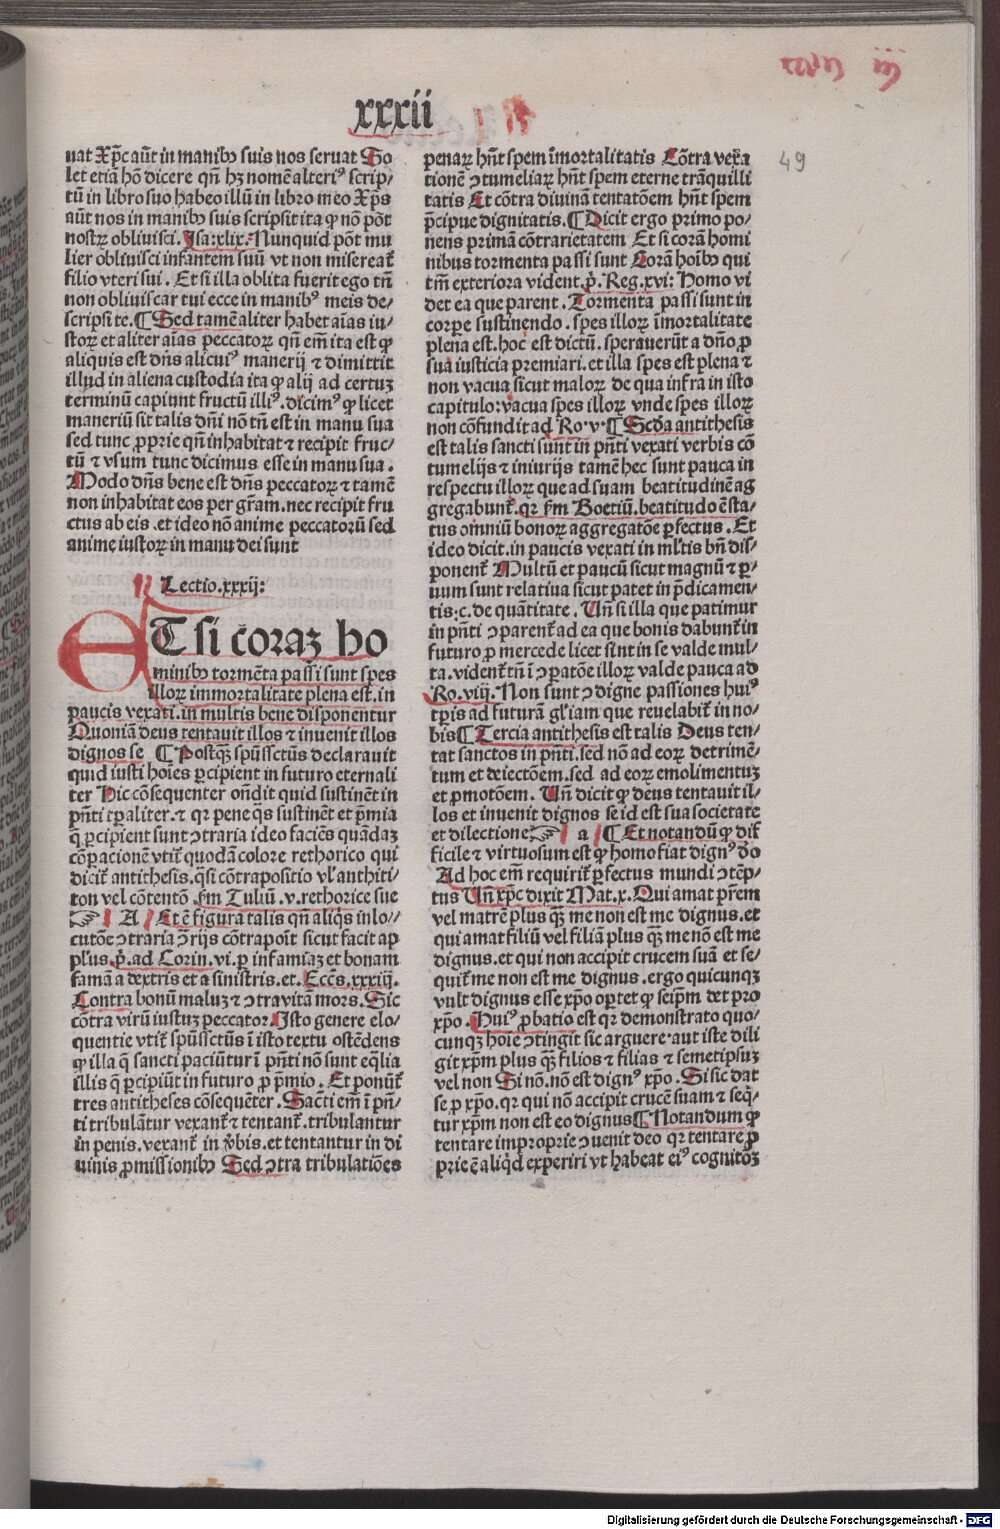 xxxii
49
uat Xp̄c aūt in manibꝰ suis nos seruat So
let etiā hō dicere qn̄ hꝫ nomē alteriꝰ scrip⸗
tū in libro suo habeo illū in libro meo Xp̄s
aūt nos in manibꝰ suis scripsit ita ꝙ nō pōt
nostꝝ obliuisci. Isa: xlix. Nunquid pōt mu
lier obliuisci infantem suū vt non misereat᷑
filio vteri sui. Et si illa oblita fuerit ego tn̄
non obliuiscar tui ecce in manibꝰ meis de⸗
scripsi te. ¶ Sed tamē aliter habet aīas iu⸗
stoꝝ et aliter aīas peccatoꝝ qn̄ em̄ ita est ꝙ
aliquis est dn̄s alicuiꝰ manerij ⁊ dimittit
illud in aliena custodia ita ꝙ alij ad certuꝫ
terminū capiunt fructū illiꝰ. dicimꝰ ꝙ licet
maneriū sit talis dn̄i nō tn̄ est in manu sua
sed tunc ꝓprie qn̄ inhabitat ⁊ recipit fruc⸗
tū ⁊ vsum tunc dicimus esse in manu sua.
Modo dn̄s bene est dn̄s peccatoꝝ ⁊ tamē
non inhabitat eos per gr̄am. nec recipit fru
ctus ab eis. et ideo nō anime peccatorū sed
anime iustoꝝ in manu dei sunt
Lectio. xxxij:
ET si corā ho
minibꝰ tormēta passi sunt spes
illoꝝ immortalitate plena est. in
paucis vexati. in multis bene disponentur
Quoniā deus tentauit illos ⁊ inuenit illos
dignos se ¶ Postqꝫ spūssctūs declarauit
quid iusti hoīes ꝑcipient in futuro eternali
ter Hic cōsequenter on̄dit quid sustinēt in
pn̄ti tp̄aliter. ⁊ qꝛ pene q̄s sustinēt et p̄mia
q̄ ꝑcipient sunt ↄtraria ideo faciēs quādaꝫ
cōꝑacionē vtit᷑ quodā colore rethorico qui
dicit᷑ antithesis. q̄si cōtrapositio vl̓ anthiti⸗
ton vel cōtentō. sm̄ Tuliū. v. rethorice sue
☞ A Et ē figura talis qn̄ aliq̄s in lo⸗
cutōe ↄtraria ↄ̄rijs cōtrapoīt sicut facit ap
pl̓us. p̄. ad Corin. vi. ꝑ infamiaꝫ et bonam
famā a dextris et a sinistris. et. Eccs̄. xxxiij.
Contra bonū maluꝫ ⁊ ↄtra vitā mors. Sic
cōtra virū iustuꝫ peccator. Isto genere elo⸗
quentie vtit᷑ spūssctūs ī isto textu ostēdens
ꝙ illa q̄ sancti paciūtur ī pn̄ti nō sunt eq̄lia
illis q̄ ꝑcipiūt in futuro ꝓ p̄mio. Et ponūt᷑
tres antitheses cōsequēter. Sacti em̄ ī pn̄⸗
ti tribulātur vexant᷑ ⁊ tentant᷑. tribulantur
in penis. vexant᷑ in v̄bis. et tentantur in di
uinis ꝓmissionibꝰ Sed ↄtra tribulatiōes
penaꝝ hn̄t spem īmortalitatis Cōtra vexa
tionē ↄtumeliaꝝ hn̄t spem eterne trāquilli
tatis Et cōtra diuinā tentatōem hn̄t spem
p̄cipue dignitatis. ¶ Dicit ergo primo po⸗
nens primā cōtrarietatem Et si corā homi
nibus tormenta passi sunt Corā hoībꝰ qui
tm̄ exteriora vident. p̄. Reg. xvi: Homo vi
det ea que parent. Tormenta passi sunt in
corꝑe sustinendo. spes illoꝝ īmortalitate
plena est. hoc est dictū. sperauerūt a dn̄o ꝓ
sua iusticia premiari. et illa spes est plena ⁊
non vacua sicut maloꝝ de qua infra in isto
capitulo: vacua spes illoꝝ vnde spes illoꝝ
non cōfundit ad Ro. v. ¶ Secd̄a antithesis
est talis sancti sunt in pn̄ti vexati verbis cō
tumelijs ⁊ iniurijs tamē hec sunt pauca in
respectu illoꝝ que ad suam beatitudinē ag
gregabunt᷑. qꝛ sm̄ Boetiū. beatitudo ē sta⸗
tus omniū bonoꝝ aggregatōe ꝑfectus. Et
ideo dicit. in paucis vexati in ml̓tis bn̄ dis⸗
ponent᷑ Multū et paucū sicut magnū ⁊ ꝑ⸗
uum sunt relatiua sicut patet in p̄dicamen⸗
tis: c. de quātitate. Vn̄ si illa que patimur
in pn̄ti ↄparent᷑ ad ea que bonis dabunt᷑ in
futuro ꝓ mercede licet sint in se valde mul⸗
ta. vident᷑ tn̄ ī ↄꝑatōe illoꝝ valde pauca ad
Ro. viij. Non sunt ↄdigne passiones huiꝰ
tp̄is ad futurā gl̓iam que reuelabit᷑ in no⸗
bis ¶ Tercia antithesis est talis Deus ten⸗
tat sanctos in pn̄ti. sed nō ad eoꝝ detrimē⸗
tum et deiectōem. sed ad eoꝝ emolimentuꝫ
et ꝓmotōem. Vn̄ dicit ꝙ deus tentauit il⸗
los et inuenit dignos se id est sua societate
et dilectione ☞ a ¶ Et notandū ꝙ dif
ficile ⁊ virtuosum est ꝙ homo fiat dignꝰ deo
Ad hoc em̄ requirit᷑ ꝑfectus mundi ↄtēp⸗
tus Vn̄ xp̄c dixit Mat. x. Qui amat pr̄em
vel matrē plus qꝫ me non est me dignus. et
qui amat filiū vel filiā plus qꝫ me nō est me
dignus. et qui non accipit crucem suā et se⸗
quit᷑ me non est me dignus. ergo quicunqꝫ
vult dignus esse xp̄o oꝑtet ꝙ seip̄m det pro
xp̄o. Huiꝰ ꝓbatio est qꝛ demonstrato quo⸗
cunqꝫ hoīe ↄtingit sic arguere. aut iste dili
git xp̄m plus qꝫ filios ⁊ filias ⁊ semetipsuꝫ
vel non Si nō. nō est dignꝰ xp̄o. Si sic dat
se ꝓ xp̄o. qꝛ qui nō accipit crucē suam ⁊ seq̄⸗
tur xp̄m non est eo dignus ¶ Notandum ꝙ
tentare improprie ↄuenit deo qꝛ tentare ꝓ
prie ē aliq̇d experiri vt habeat eiꝰ cognitōꝫ
Digitalisierung gefördert durch die Deutsche Forschungsgemeinschaft - DFG